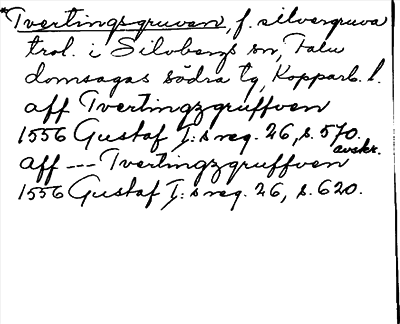 *Tvertingsgruvan, f. silvergruva
trol. i Silvbergs sn, Falu
domsagas södra tg, Kopparb. l.
aff Tvertingzgruffven
1556 Gustaf I:s reg. 26, s. 570.
avskr.
aff --- Tvertingzgruffven
1556 Gustaf I:s reg. 26, s. 620.